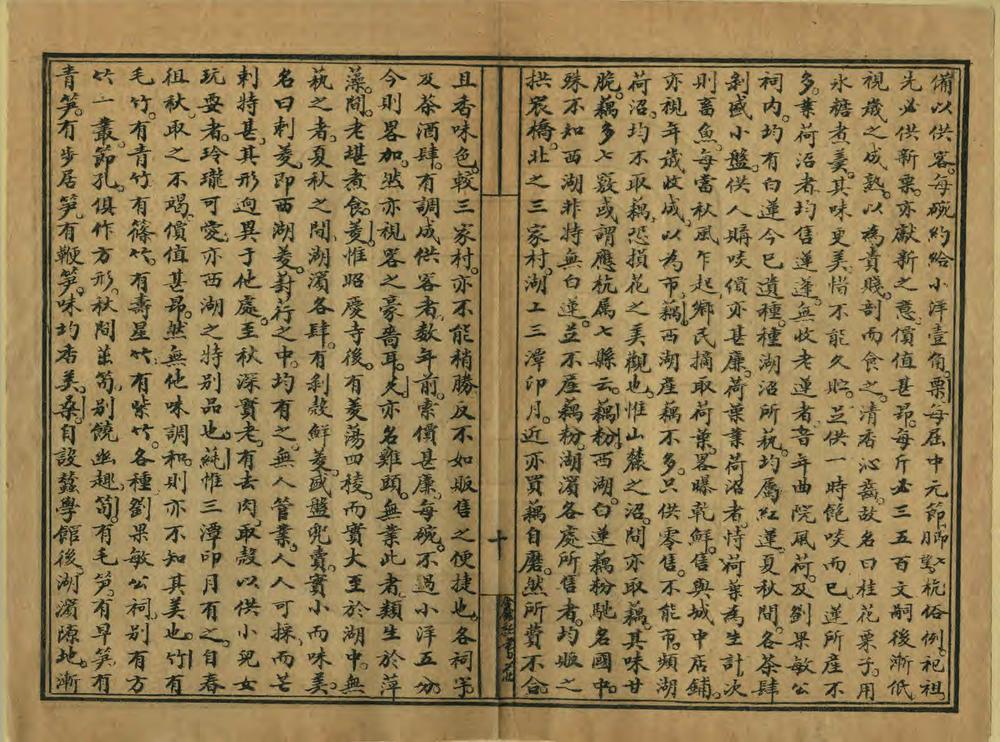 備以供客。每碗約給小洋壹角。栗每屆中元節腳鷔杭俗例祀祖
先必供新栗。亦獻新之意。價值甚昂。每斤必三五百文。嗣後漸低
視歲之成熟。以為貴賤。剖而食之。清香沁齒。故名曰桂花栗子。用
冰糖煮羹。其味更美。惜不能久貯。且供一時飽啖而已。蓮所產不
多。業荷沼者。均售蓮蓬。無收老蓮者。昔年曲院風荷及劉果敏公
祠內。均有白蓮。今已遺種。種湖沼所蓺。均屬紅蓮。夏秋間。各茶肆
剝盛小盤。供人購啖。價亦甚廉。荷葉業荷沼者。恃荷葉為生計。次
則畜魚。每當秋風乍起。鄉民摘取荷葉。畧曝乾鮮。售與城中店鋪。
亦視年歲收成。以為市。藕西湖產藕不多。只供零售。不能市。瀕湖
荷沼。均不取藕。恐損花之美觀也。惟山麓之沼。間亦取藕。其味甘
脆。藕多七竅。或謂應杭屬七縣云。藕粉西湖。白蓮藕粉馳名國中。
殊不知西湖非特無白蓮。並不產藕粉。湖濱各處所售者。均販之
拱宸橋。北之三家村。湖上三潭印月。近亦買藕自磨。然所費不合
且香味色。較三家村。亦不能稍勝。反不如販售之便捷也。各祠宇
及茶酒肆。有調成供客者。數年前。索價甚廉。每碗。不過小洋五分
今則畧加。然亦視客之豪嗇耳。芡亦名雞頭。無業此者。類生於萍
藻。間。老堪煮食。菱惟昭慶寺後。有菱蕩四稜。而實大。至於湖中。無
蓺之者。夏秋之間。湖濱各肆。有剝殼鮮菱。盛盤兜賣。實小而味美。
名曰刺菱。即西湖菱。葑行之中。均有之。無人管業。人人可採。而芒
刺特甚。其形迥異于他處。至秋深實老。有去肉。取殼以供小兒女
玩耍者。玲瓏可愛。亦西湖之特別品也。蒓惟三潭印月有之。自春
徂秋。取之不竭。價值甚昂。然無他味調和。則亦不知其美也。竹有
毛竹。有青竹。有篠竹。有壽星竹。有紫竹。各種。劉果敏公祠。別有方
竹一叢。節孔。俱作方形。秋間茁筍。別饒幽趣。筍。有毛笋。有早笋有
青笋。有步居笋。有鞭笋。味均香美。桑。自設蠶學館後。湖濱隙地。漸
十